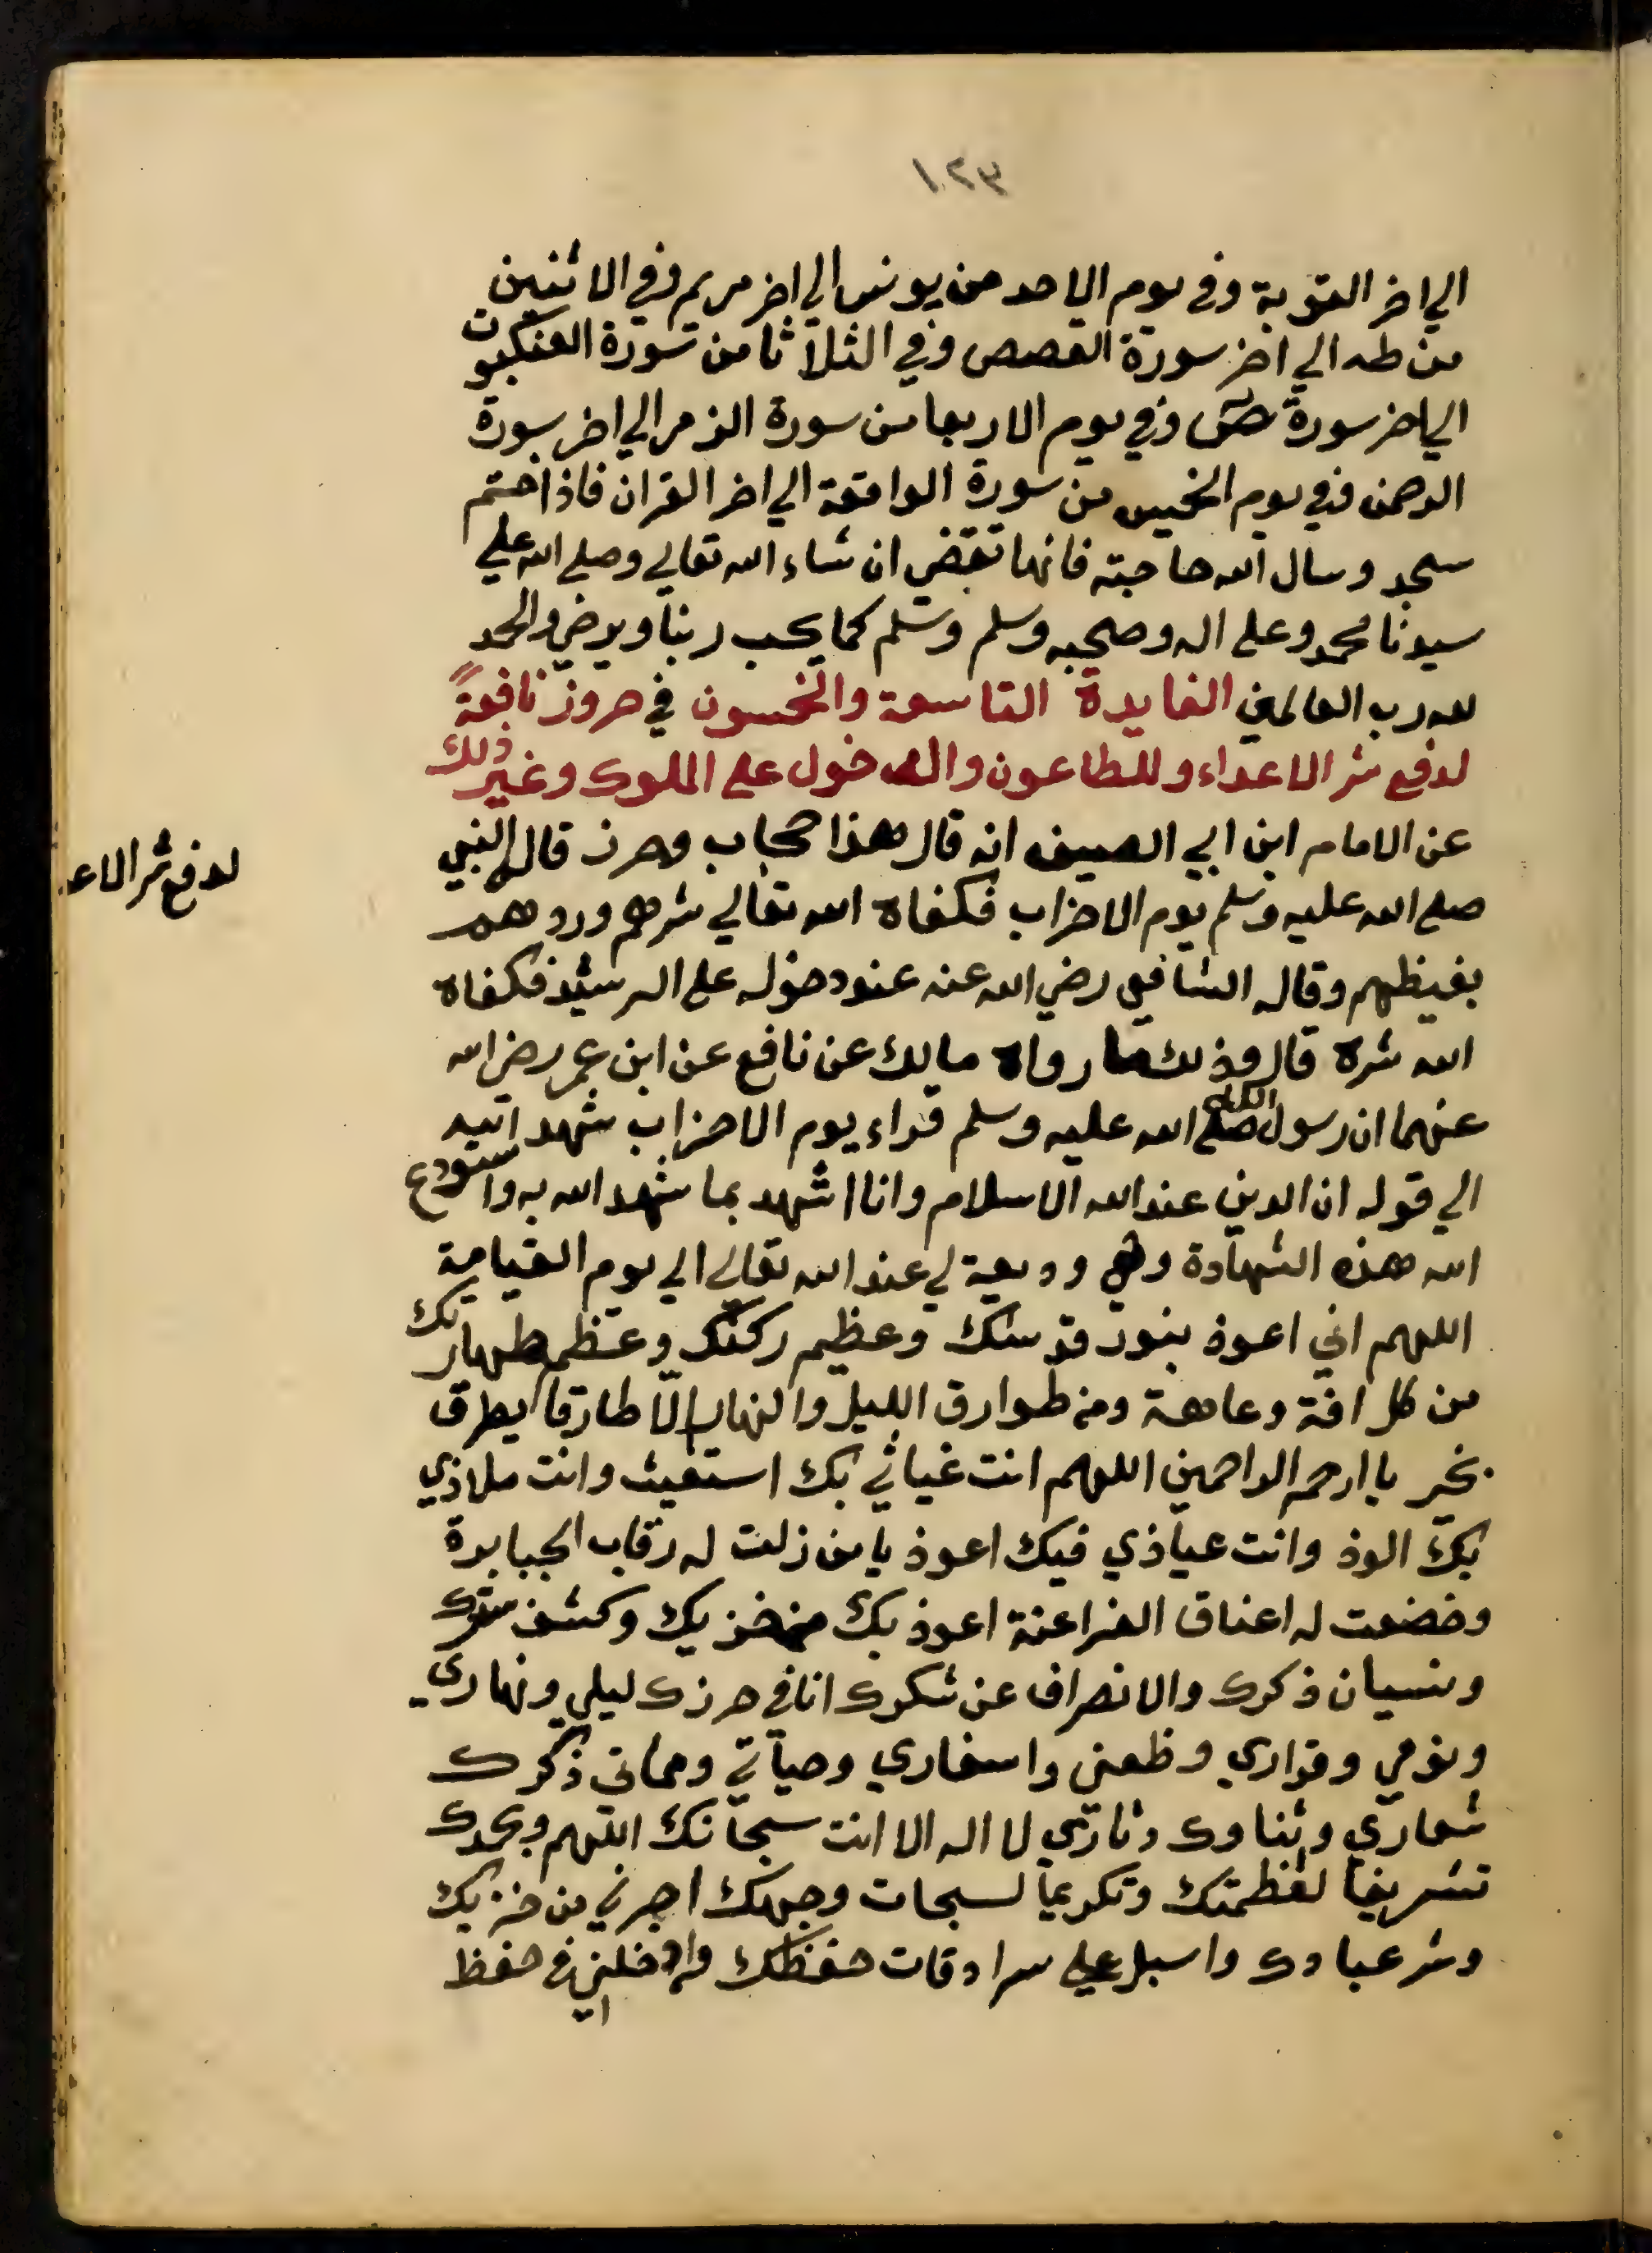 ١٢٣
الي اخر التوبة وفي يوم الاحد من يونس الي اخر مريم وفي الاثنين
من طه الي اخر سورة القصص وفي الثلاثا من سورة العنكبوت
الي اخر سورة ص وفي يوم الاربعا من سورة الزمر الي اخر سورة
الرحمن وفي يوم الخميس من سورة الواقعة الي اخر القران فاذا ختم
سجد وسال الله حاجته فانها تقضي ان شاء الله تعالي وصلي الله علي
سيدنا محمد وعلي اله وصحبه وسلم وسلم كما يحب ربنا ويرضي والحمد
لله رب العالمين الفايدة التاسعة والخمسون في حروز نافعة
لدفع شر الاعداء وللطاعون والدخول علي الملوك وغير ذلك
عن الامام ابن ابي الصيف انه قال هذا حجاب وحرز قاله النبي
لدفع شر الاعد
صلي الله عليه وسلم يوم الاحزاب فكفاه الله تعالي شرهم وردهم
بغيظهم وقاله الشافعي رضي الله عنه عند دخوله علي الرشيد فكفاه
الله شره قال وذلك ما رواه مالك عن نافع عن ابن عمر رضي الله
عنهما ان رسول الله صلي الله عليه وسلم قراء يوم الاحزاب شهد الله
الي قوله ان الدين عند الله الاسلام وانا اشهد بما شهد الله به واستودع
الله هذه الشهادة وهي وديعة لي عند الله تعالي الي يوم القيامة
اللهم اني اعوذ بنور قدسك وعظيم ركنك وعظم طهارتك
من كل افة وعاهة ومن طوارق الليل والنهار الا طارقا يطرق
بخير يا ارحم الراحمين اللهم انت غياثي بك استغيث وانت ملاذي
بك الوذ وانت عياذي فبك اعوذ يا من ذلت له رقاب الجبابرة
وخضعت له اعناق الفراعنة اعوذ بك من خزيك وكشف سترك
ونسيان ذكرك والانصراف عن شكرك انا في حرزك ليلي ونهاري
ونومي وقراري وظعني واسفاري وحياتي ومماتي ذكرك
شعاري وثناوك دثاري لا اله الا انت سبحانك اللهم وبحمدك
تشريفا لعظمتك وتكريما لسبحات وجهك اجرني من خزيك
وشر عبادك واسبل علي سرادقات حفظك وادخلني في حفظ